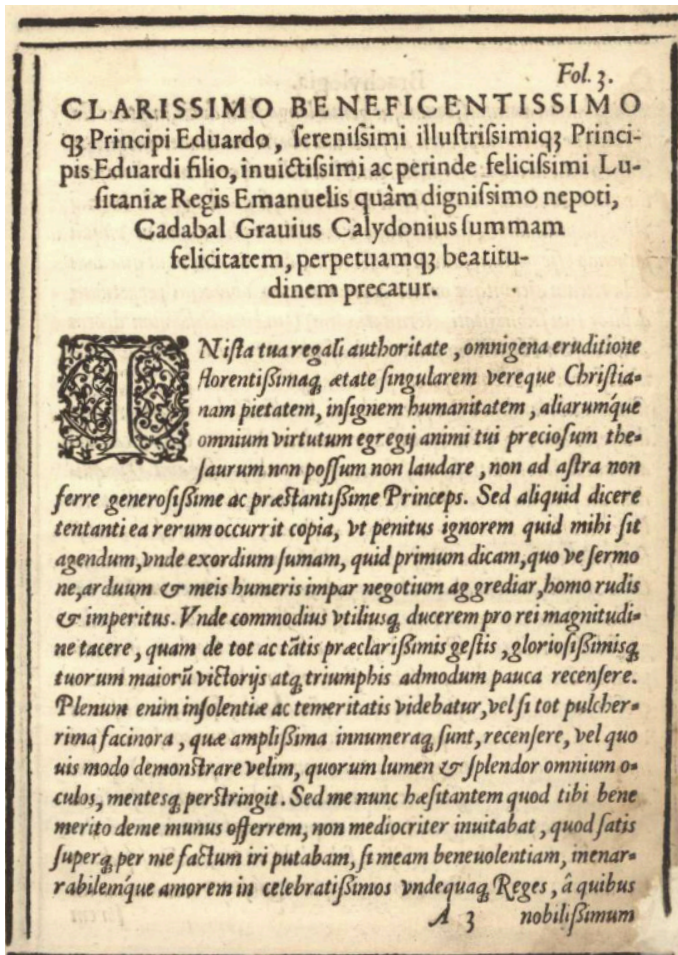 Fol. 3.
CLARISSIMO BENEFICENTISSIMO
qꝫ Principi Eduardo, ſereniſsimi illuſtriſsimiqꝫ Princi-
pis Eduardi filio, inuictiſsimi ac perinde feliciſsimi Lu-
ſitaniæ Regis Emanuelis quàm digniſsimo nepoti,
Cadabal Grauius Calydonius ſummam
felicitatem, perpetuamqꝫ beatitu-
dinem precatur.
INiſta tua regali authoritate, omnigena eruditione
florentißimaq́ꝫ ætate ſingularem vereque Chriſtia-
nam pietatem, inſignem humanitatem, aliarumq́ue
omnium virtutum egregij animi tui precioſum the-
ſaurum non poſſum non laudare, non ad aſtra non
ferre generoſißime ac præſtantißime Princeps. Sed aliquid dicere
tentanti ea rerum occurrit copia, vt penitus ignorem quid mihi ſit
agendum, vnde exordium ſumam, quid primum dicam, quo ve ſermo
ne, arduum & meis humeris impar negotium aggrediar, homo rudis
& imperitus. Vnde commodius vtiliusq́ꝫ ducerem pro rei magnitudi-
ne tacere, quam de tot ac tãtis præclarißimis geſtis, glorioſißimisq́ꝫ
tuorum maiorũ victorijs atq́ꝫ triumphis admodum pauca recenſere.
Plenum enim inſolentiæ ac temeritatis videbatur, vel ſi tot pulcher-
rima facinora, quæ amplißima innumeraq́ꝫ ſunt, recenſere, vel quo
uis modo demonſtrare velim, quorum lumen & ſplendor omnium o-
culos, mentesq́ꝫ perſtringit. Sed me nunc hæſitantem quod tibi bene
merito deme munus offerrem, non mediocriter inuitabat, quod ſatis
ſuperq́ꝫ per me factum iri putabam, ſi meam beneuolentiam, inenar-
rabilemq́ue amorem in celebratißimos vndequaq́ꝫ Reges, â quibus
A 3 nobilißimum